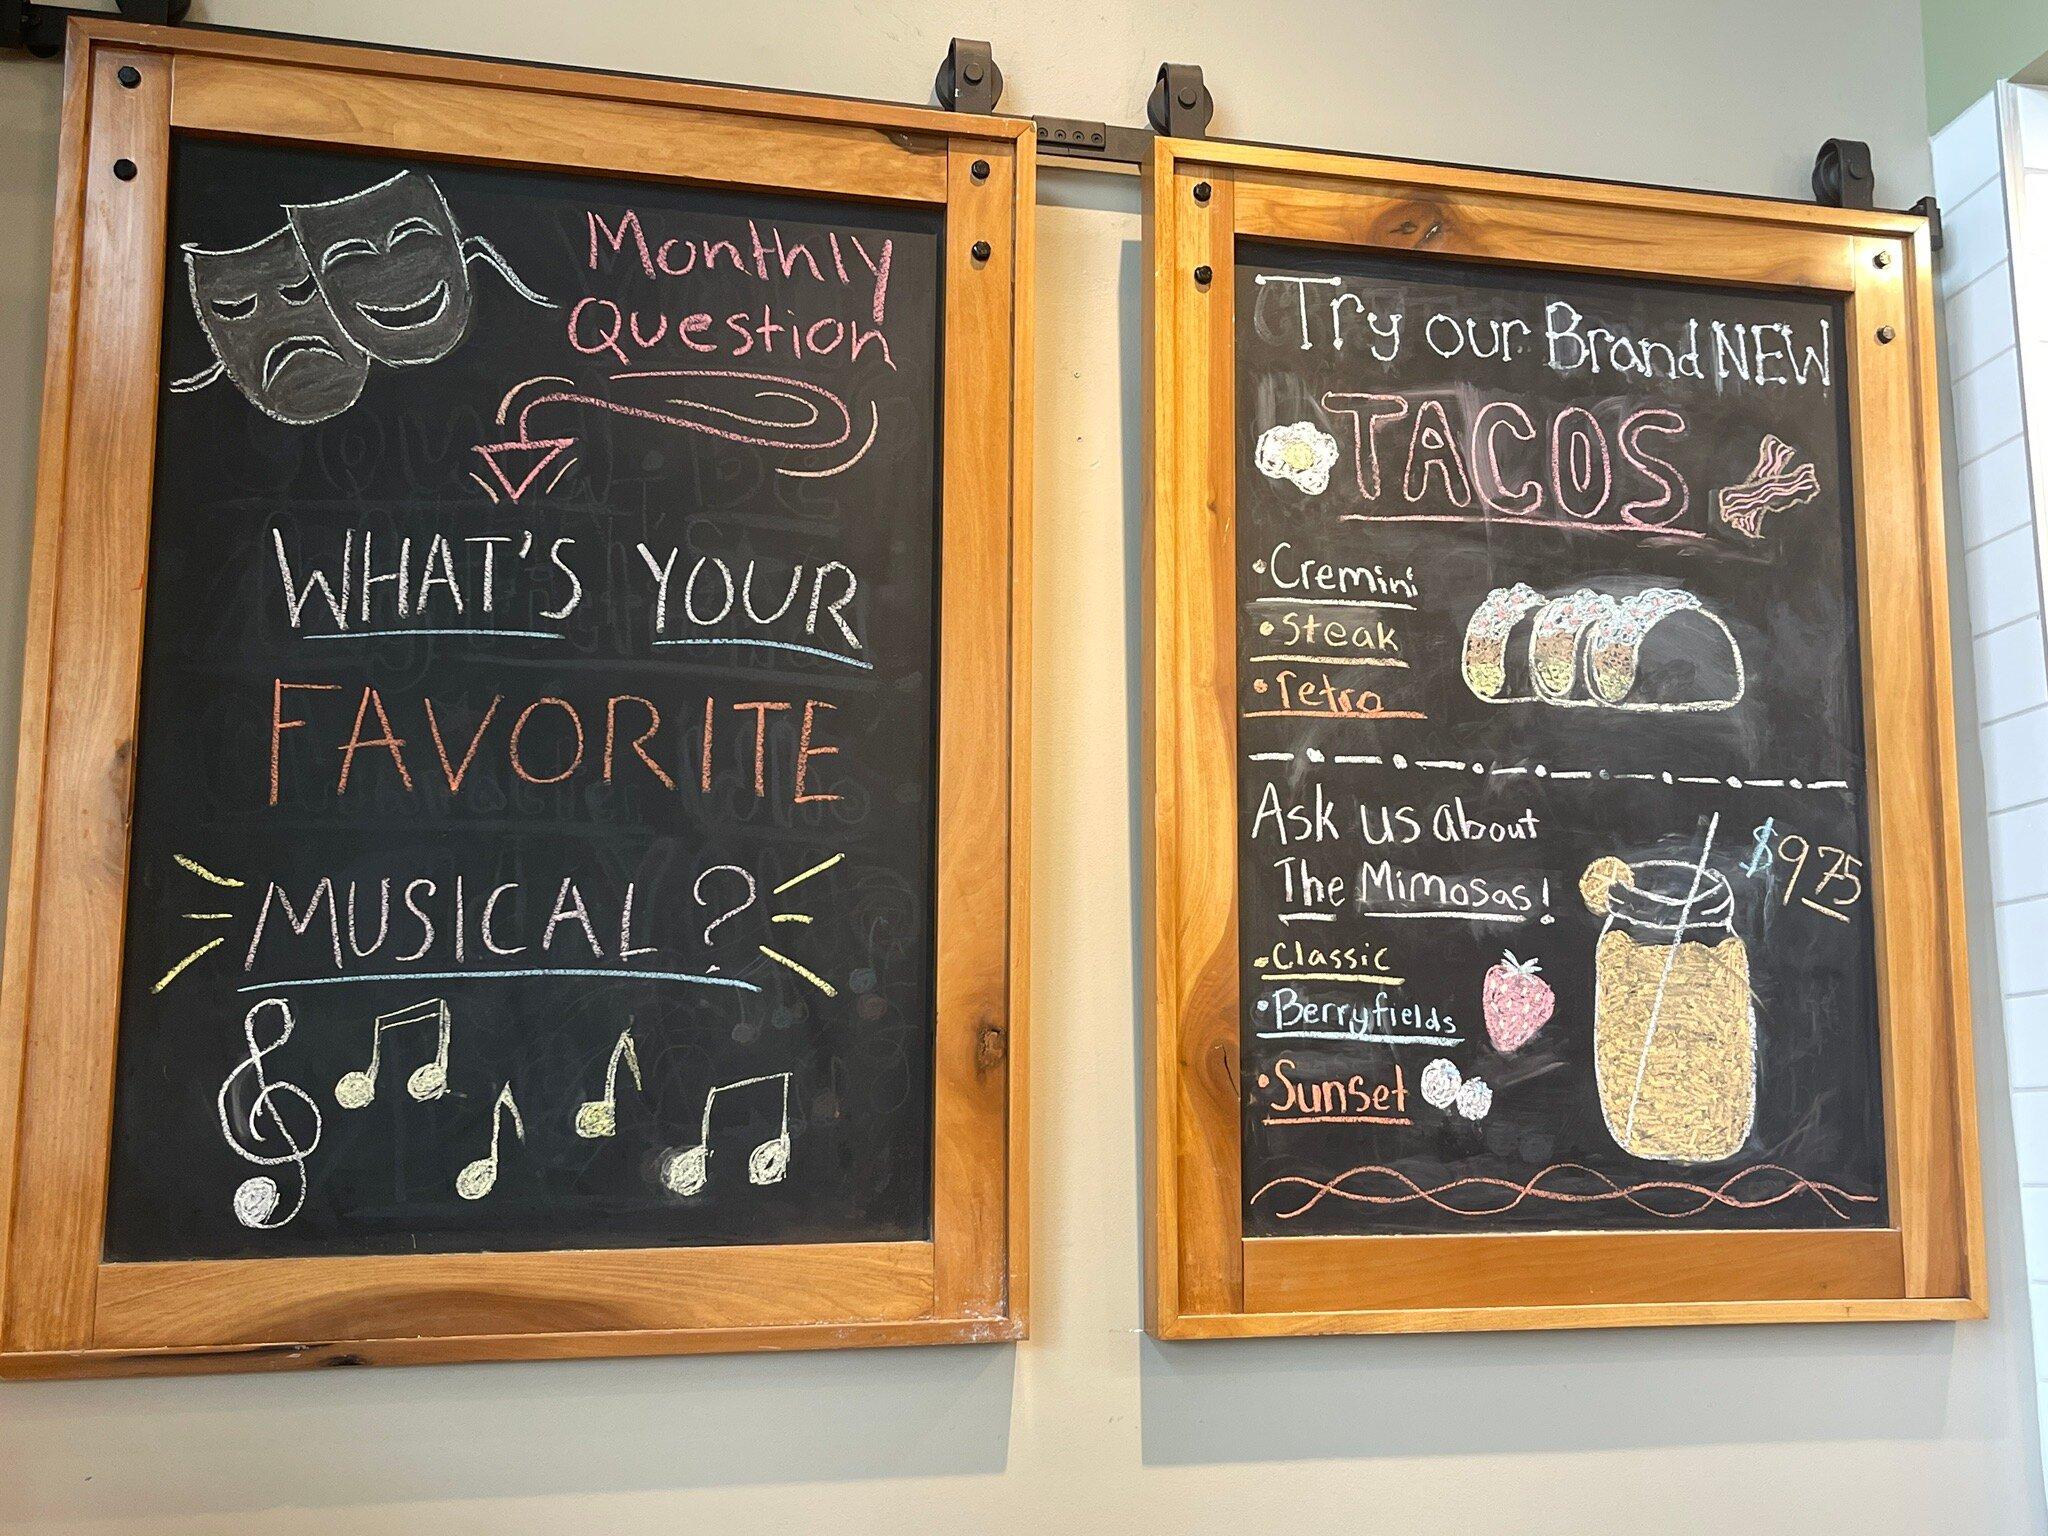 Monthly
Question
WHAT'S YOUR
FAVORITE
MUSICAL?
Try our Brand NEW
TACOS
• Cremini
• Steak
• retro
Ask us about
The Mimosas!
$9.75
• Classic
• Berryfields
• Sunset